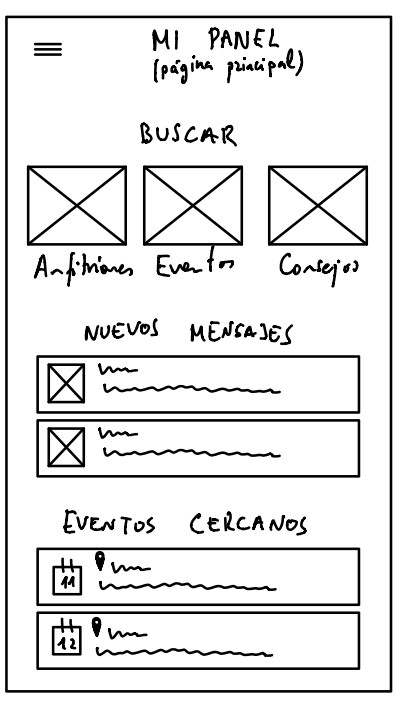 MI PANEL
(página principal)
BUSCAR
Anfitriones Eventos Consejos
NUEVOS MENSAJES
EVENTOS CERCANOS
11
12